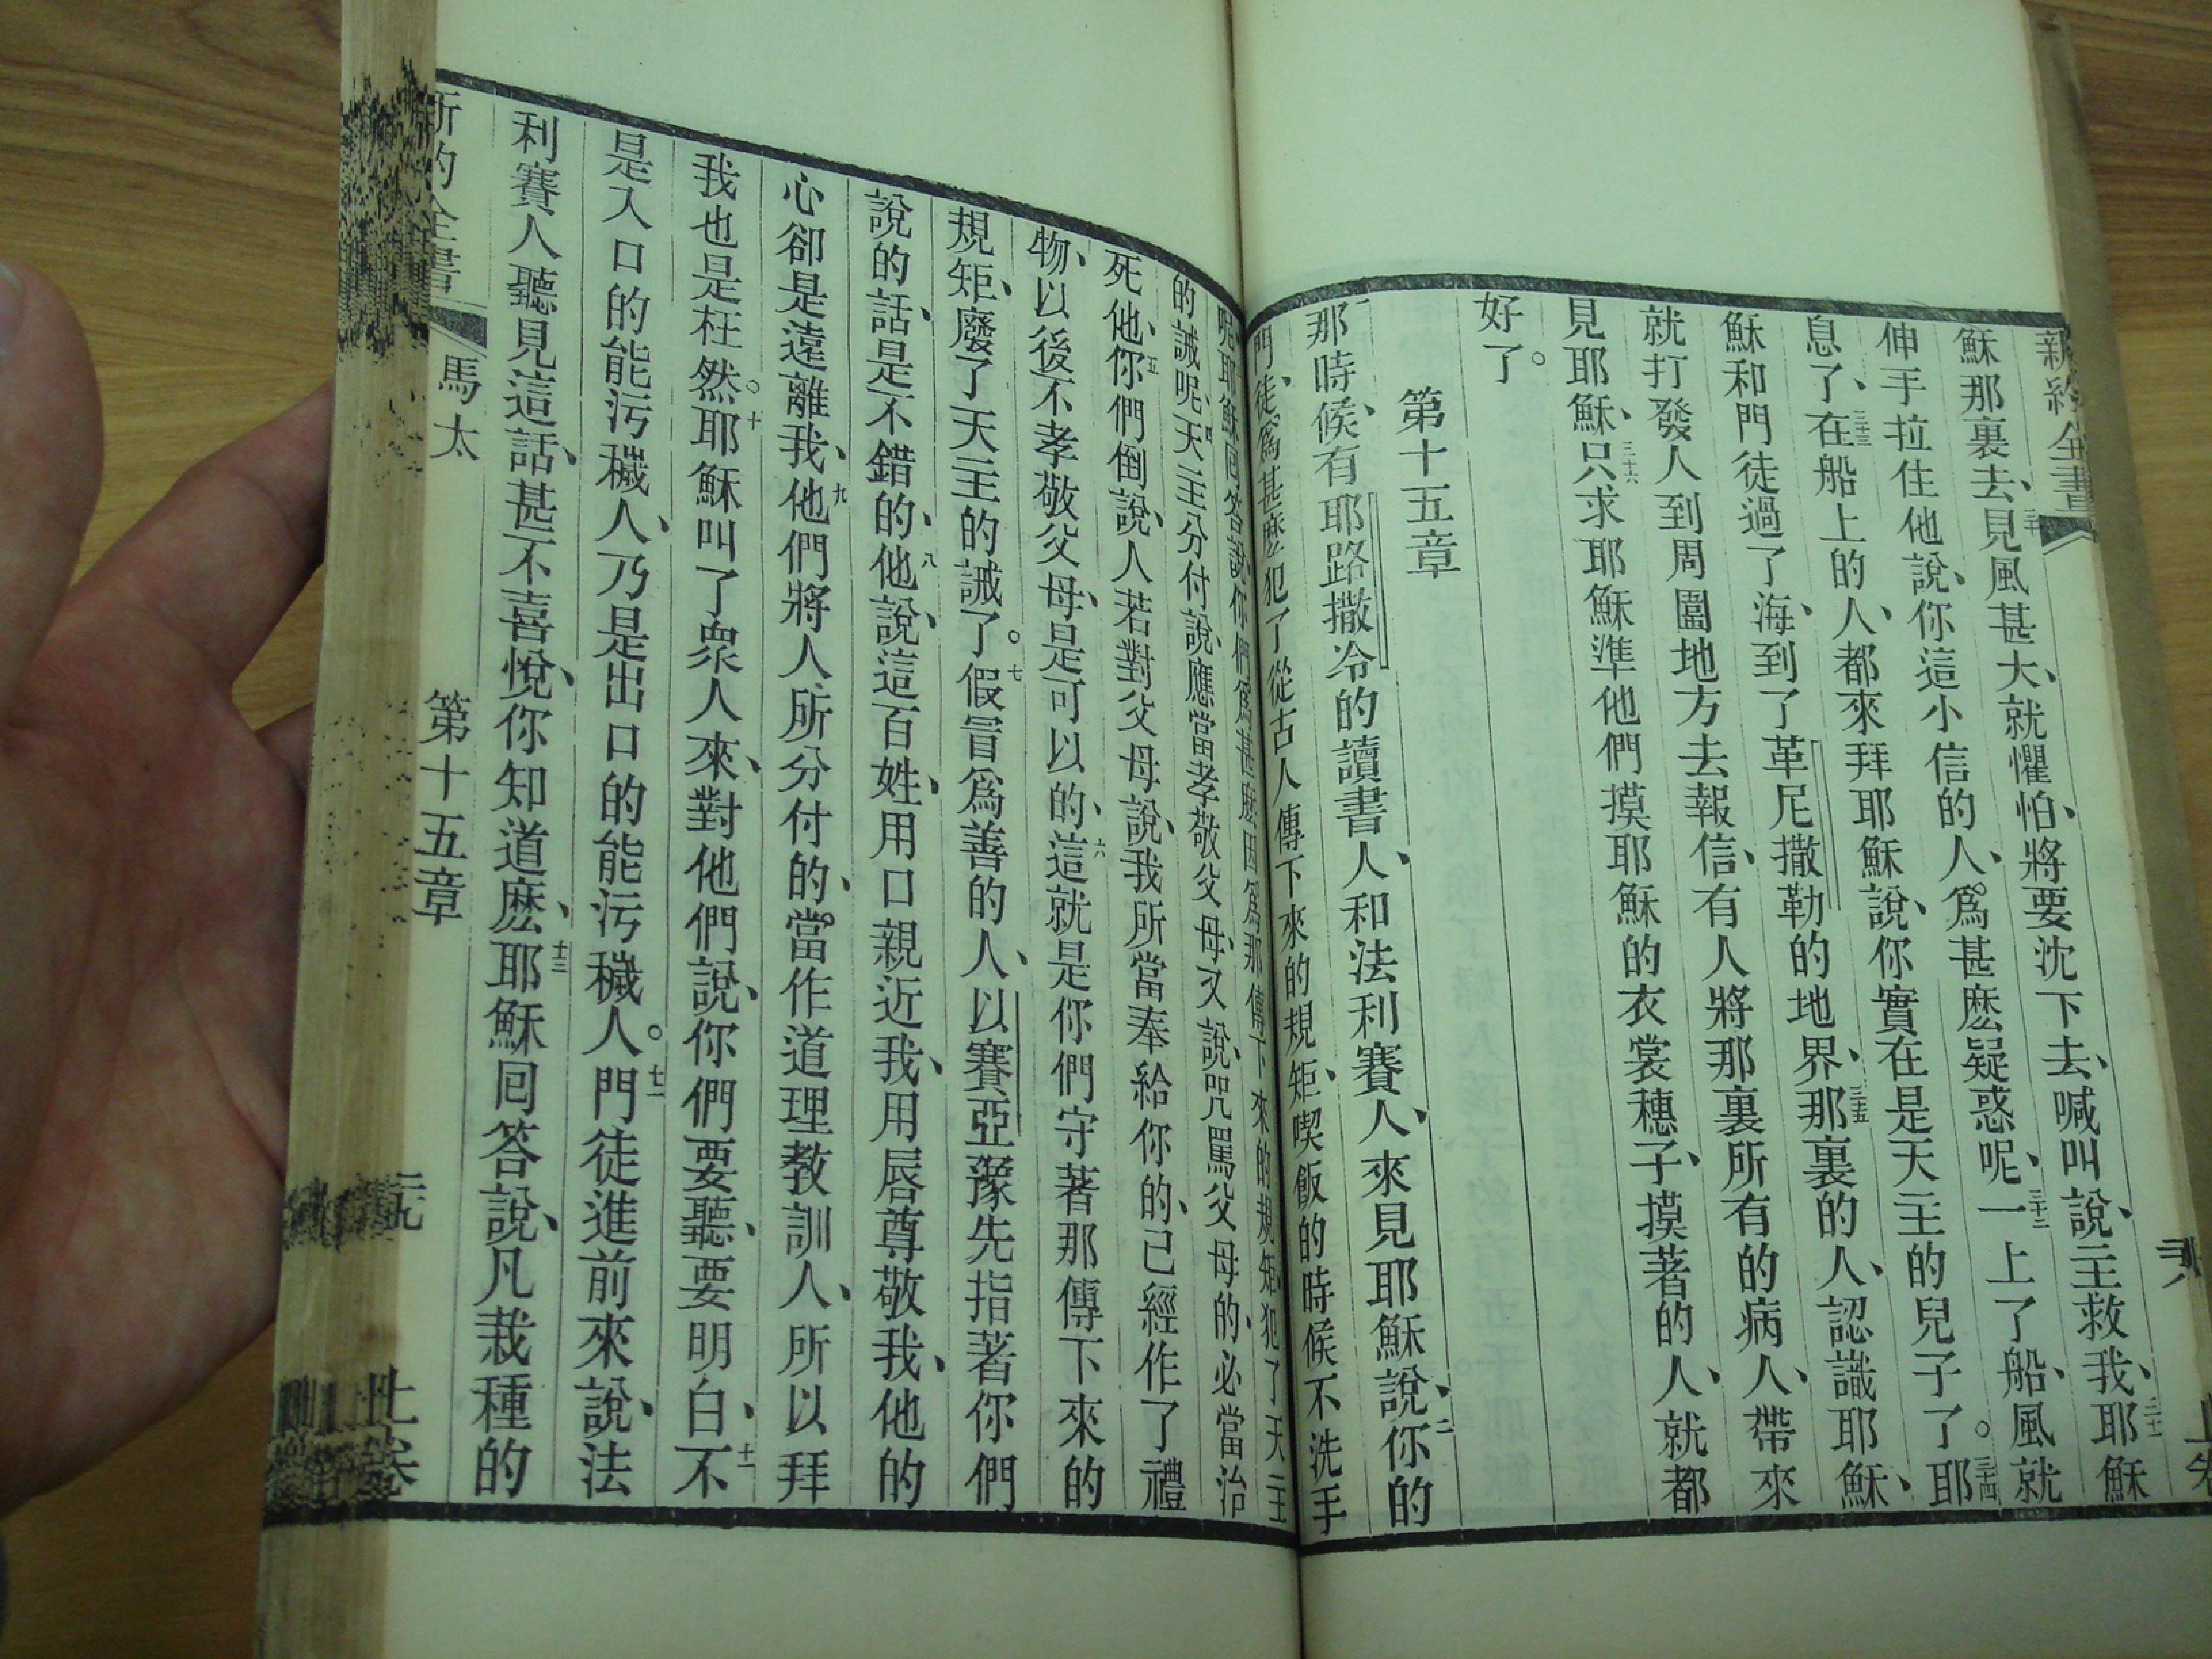 新約全書
上卷
穌那裏去、見風甚大、就懼怕、將要沈下去、喊叫說、主救我、三十一耶穌
伸手拉住他說、你這小信的人、爲甚麽疑惑呢、三十二一上了船、風就
息了、三十三在船上的人、都來拜耶穌說、你實在是天主的兒子了。三十四耶
穌和門徒過了海、到了革尼撒勒的地界、三十五那裏的人、認識耶穌、
就打發人到周圍地方去報信、有人將那裏所有的病人、帶來
見耶穌、三十六只求耶穌準他們摸耶穌的衣裳穗子、摸著的人、就都
好了。
第十五章
那時候、有耶路撒冷的讀書人、和法利賽人、來見耶穌說、二你的
門徒、爲甚麽犯了從古人傳下來的規矩、喫飯的時候不洗手
呢、耶穌回答說、你們爲甚麽因爲那傳下來的規矩、犯了天主
的誡呢、四天主分付說、應當孝敬父母、又說、咒罵父母的、必當治
死他、五你們倒說、人若對父母說、我所當奉給你的、已經作了禮
物、以後不孝敬父母、是可以的、六這就是你們守著那傳下來的
規矩、廢了天主的誡了。七假冒爲善的人、以賽亞豫先指著你們
說的話、是不錯的、八他說、這百姓、用口親近我、用唇尊敬我、他的
心卻是遠離我、九他們將人所分付的、當作道理教訓人、所以拜
我也是枉然。十耶穌叫了衆人來、對他們說、你們要聽、要明白、十一不
是入口的能污穢人、乃是出口的能污穢人。十二門徒進前來說、法
利賽人聽見這話、甚不喜悅、你知道麽、十三耶穌回答說、凡栽種的
新約全書
馬太
第十五章
上卷